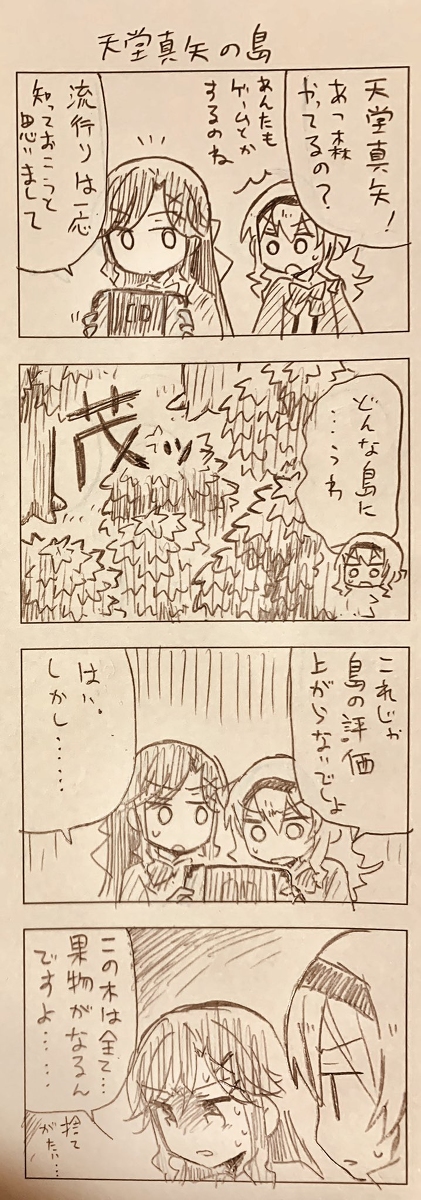 天堂真矢の島
天堂真矢!
あつ森
やってるの?
あんたも
ゲームとか
するのね
流行りは一応
知っておこうと
思いまして
どんな島に
・・・うわ
茂ッ
これじゃ
島の評価
上がらないでしょ
はい。
しかし・・・・・・
この木は全て・・・
果物がなるん
ですよ・・・・
捨て
がたい・・・